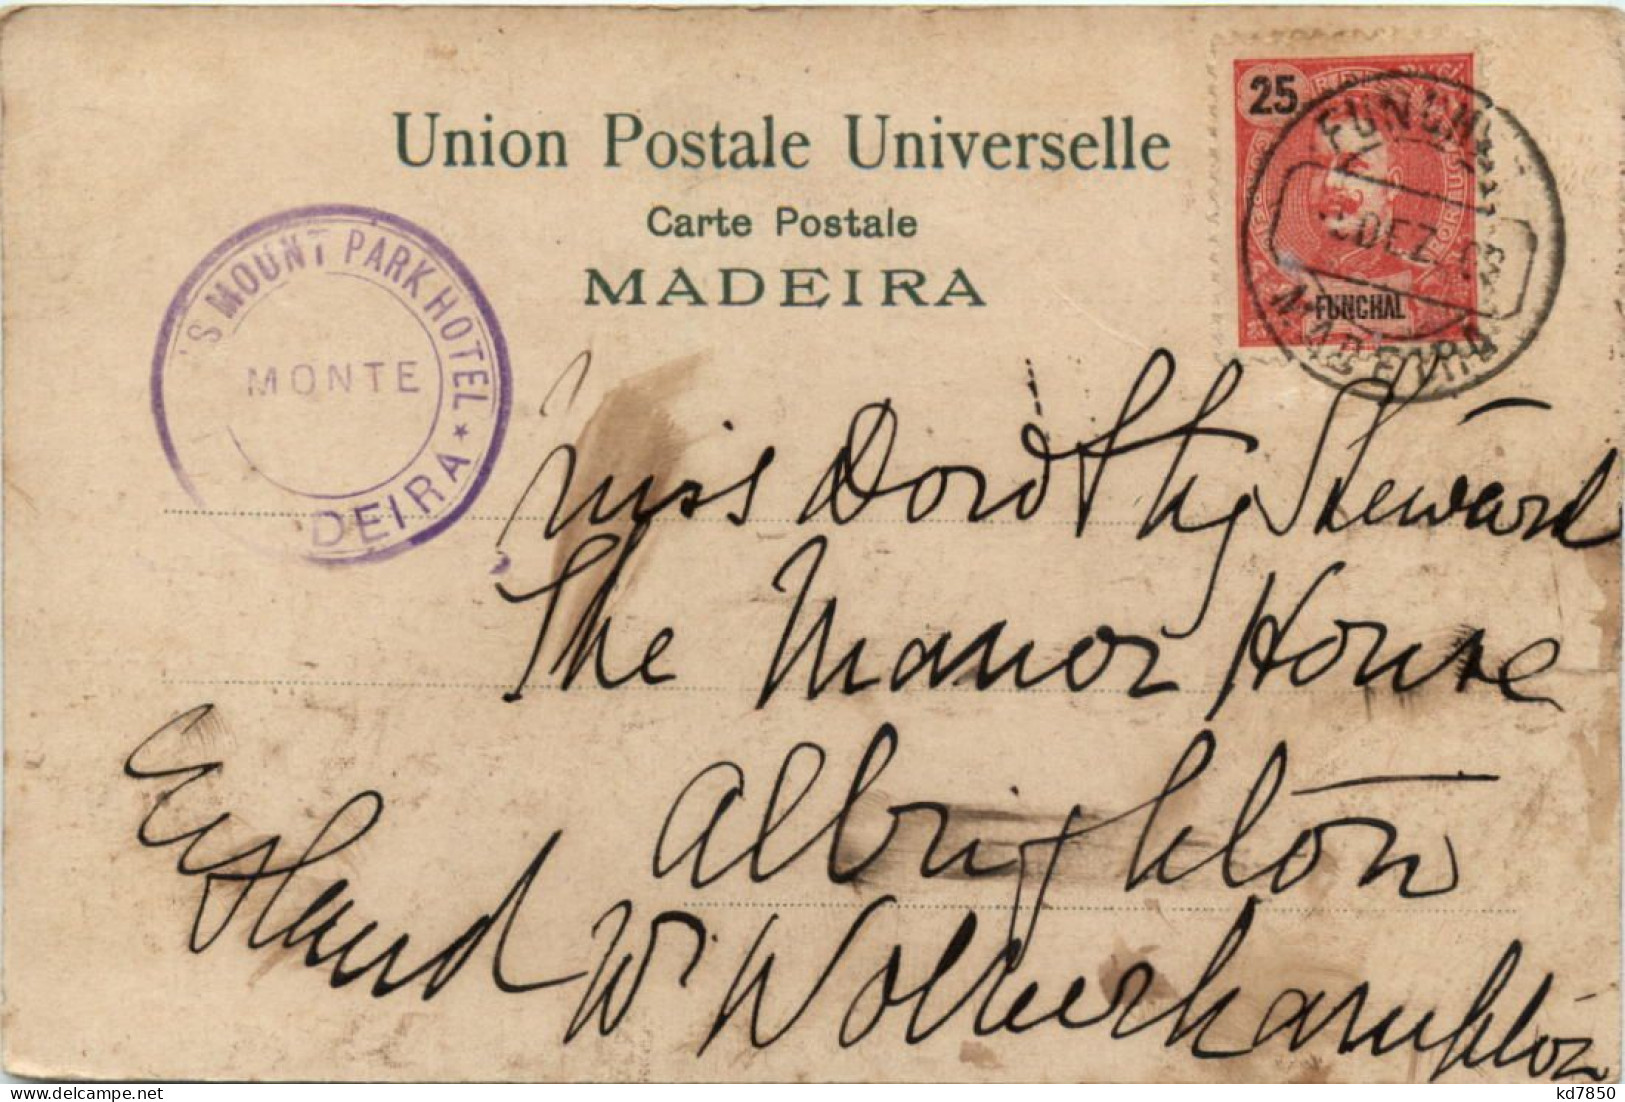 Union Postale Universelle
Carte Postale
MADEIRA
'S MOUNT PARK HOTEL
MONTE
DEIRA
25
FUNCHAL
FUNCH
DEZ
MADEIRA
Miss Dorothy Steward
The Manor House
Albrighton
Nr Wolverhampton
England
kd7850